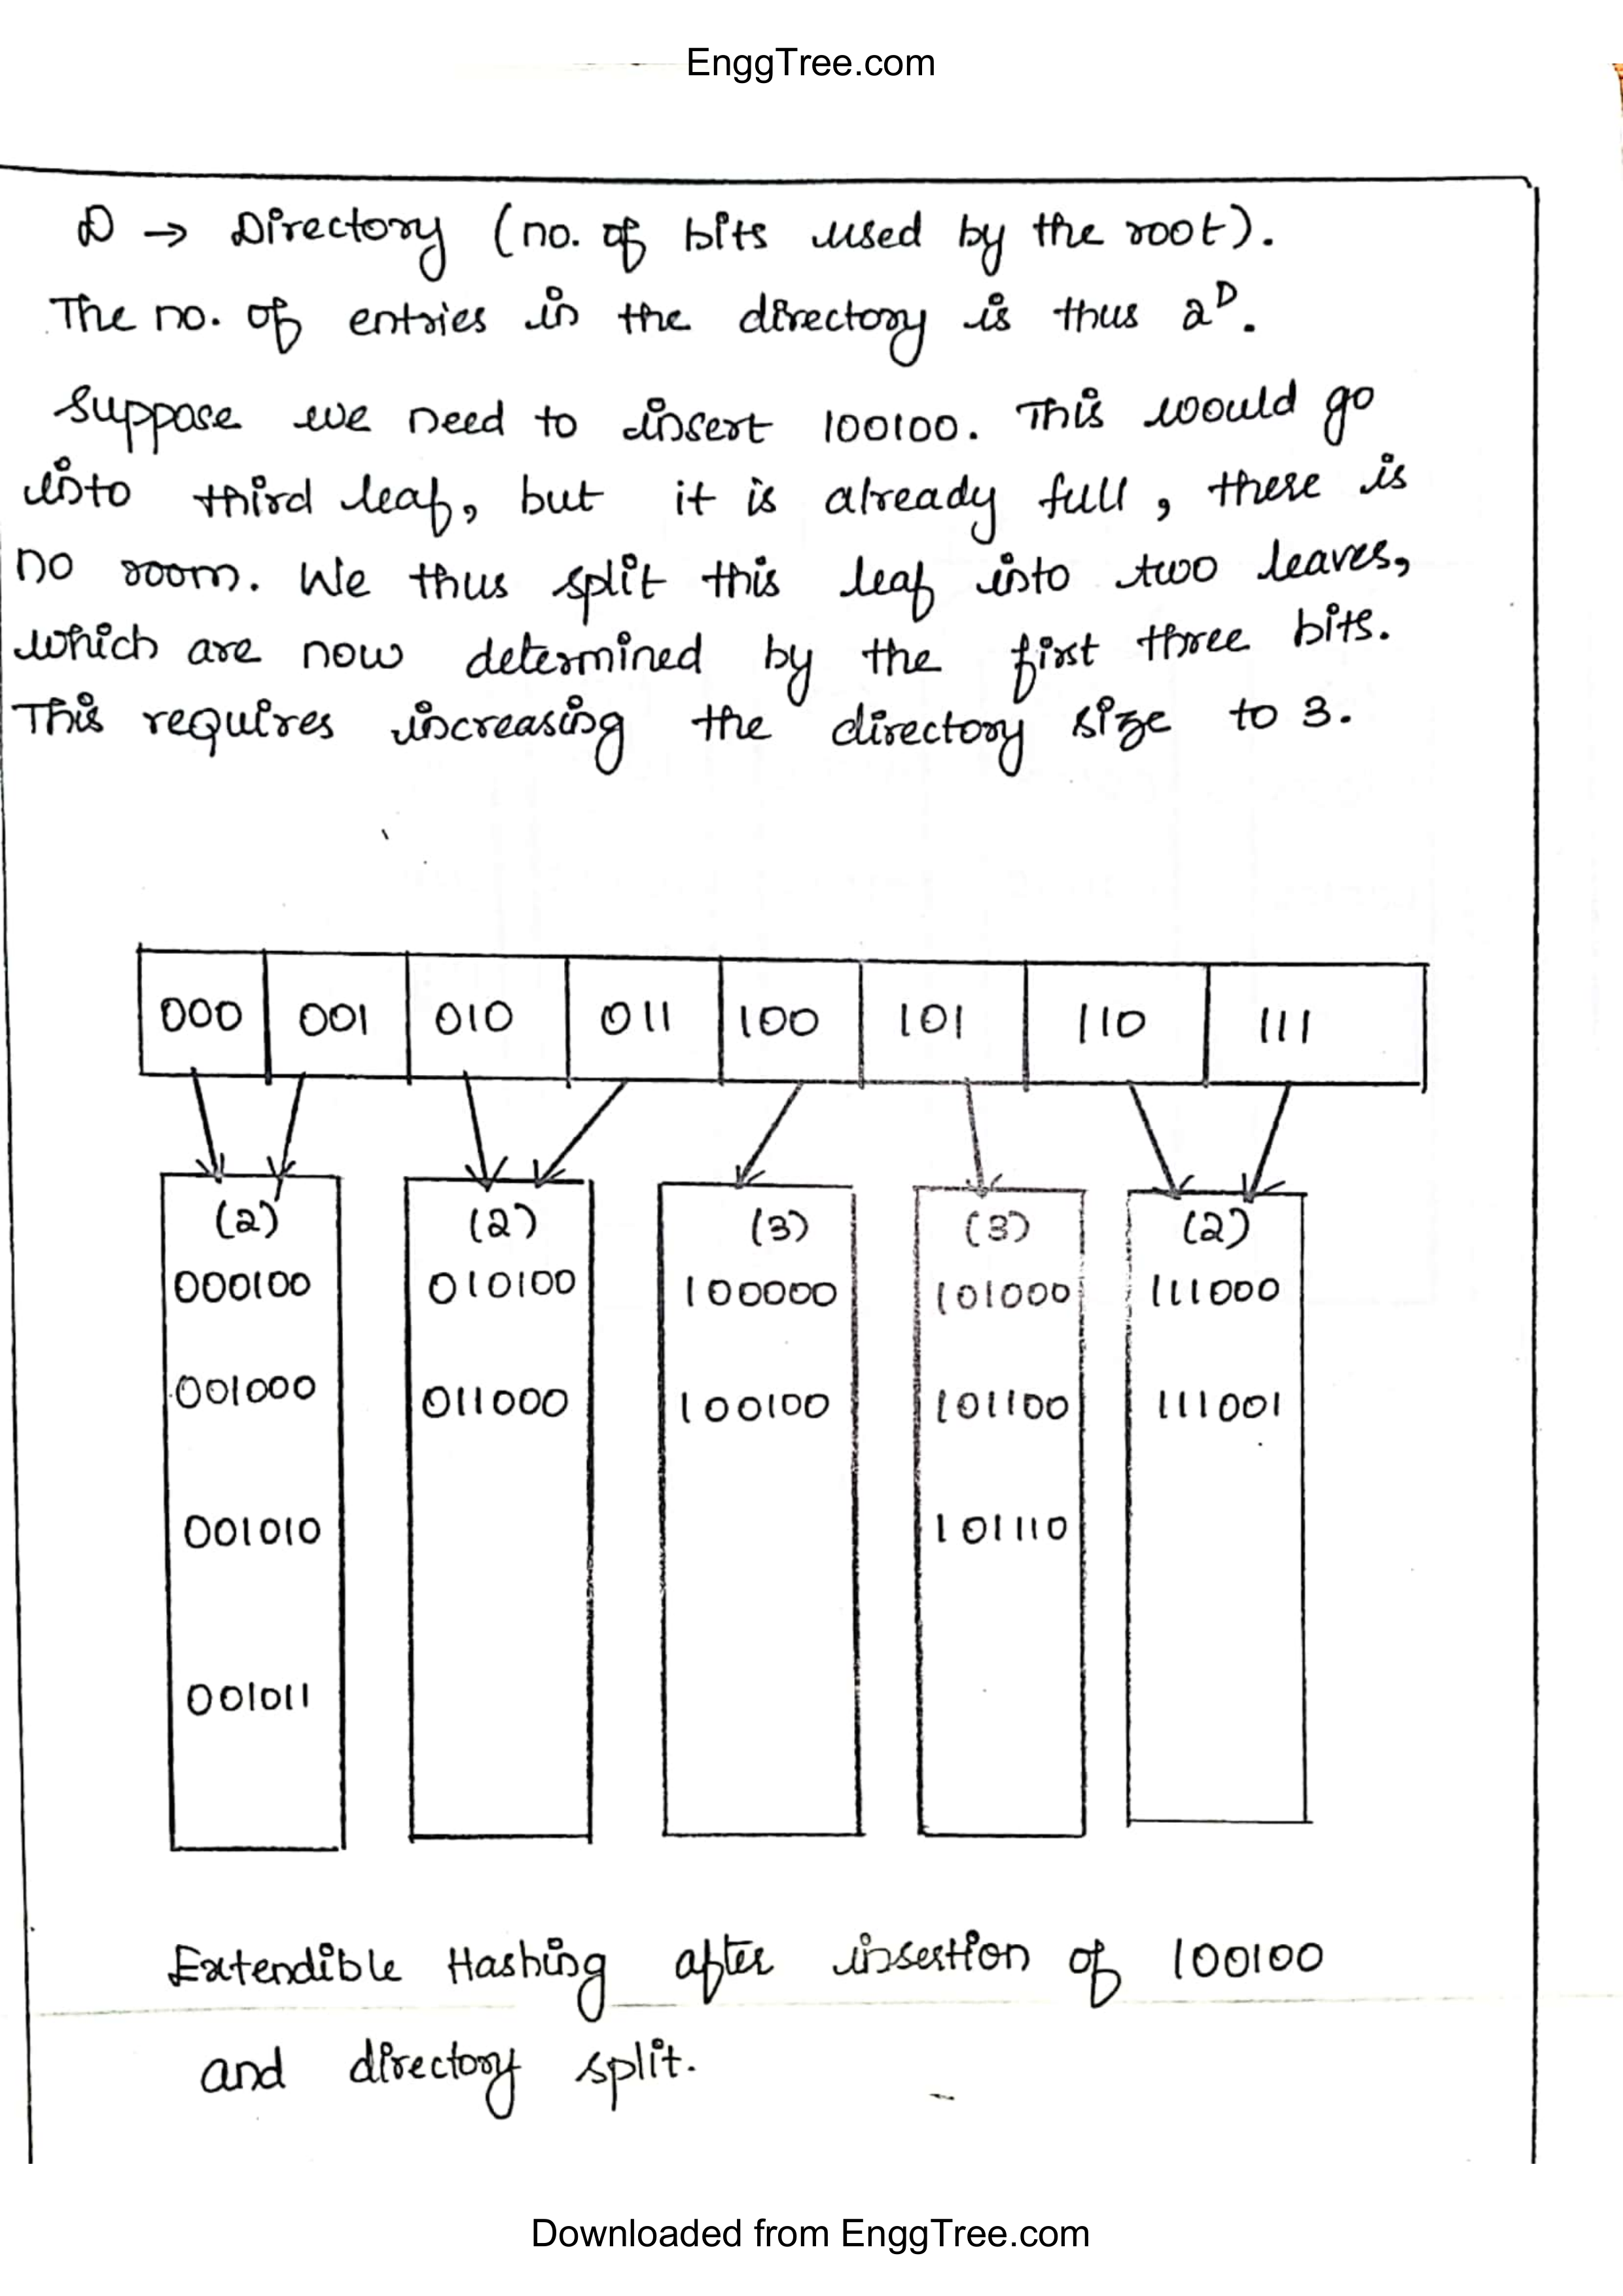 EnggTree.com
D → Directory (no. of bits used by the root).
The no. of entries in the directory is thus 2^D.
Suppose we need to insert 100100. This would go
into third leaf, but it is already full, there is
no room. We thus split this leaf into two leaves,
which are now determined by the first three bits.
This requires increasing the directory size to 3.
000 001 010 011 100 101 110 111
(2) (2) (3) (3) (2)
000100 010100 100000 101000 111000
001000 011000 100100 101100 111001
001010 101110
001011
Extendible Hashing after insertion of 100100
and directory split.
Downloaded from EnggTree.com